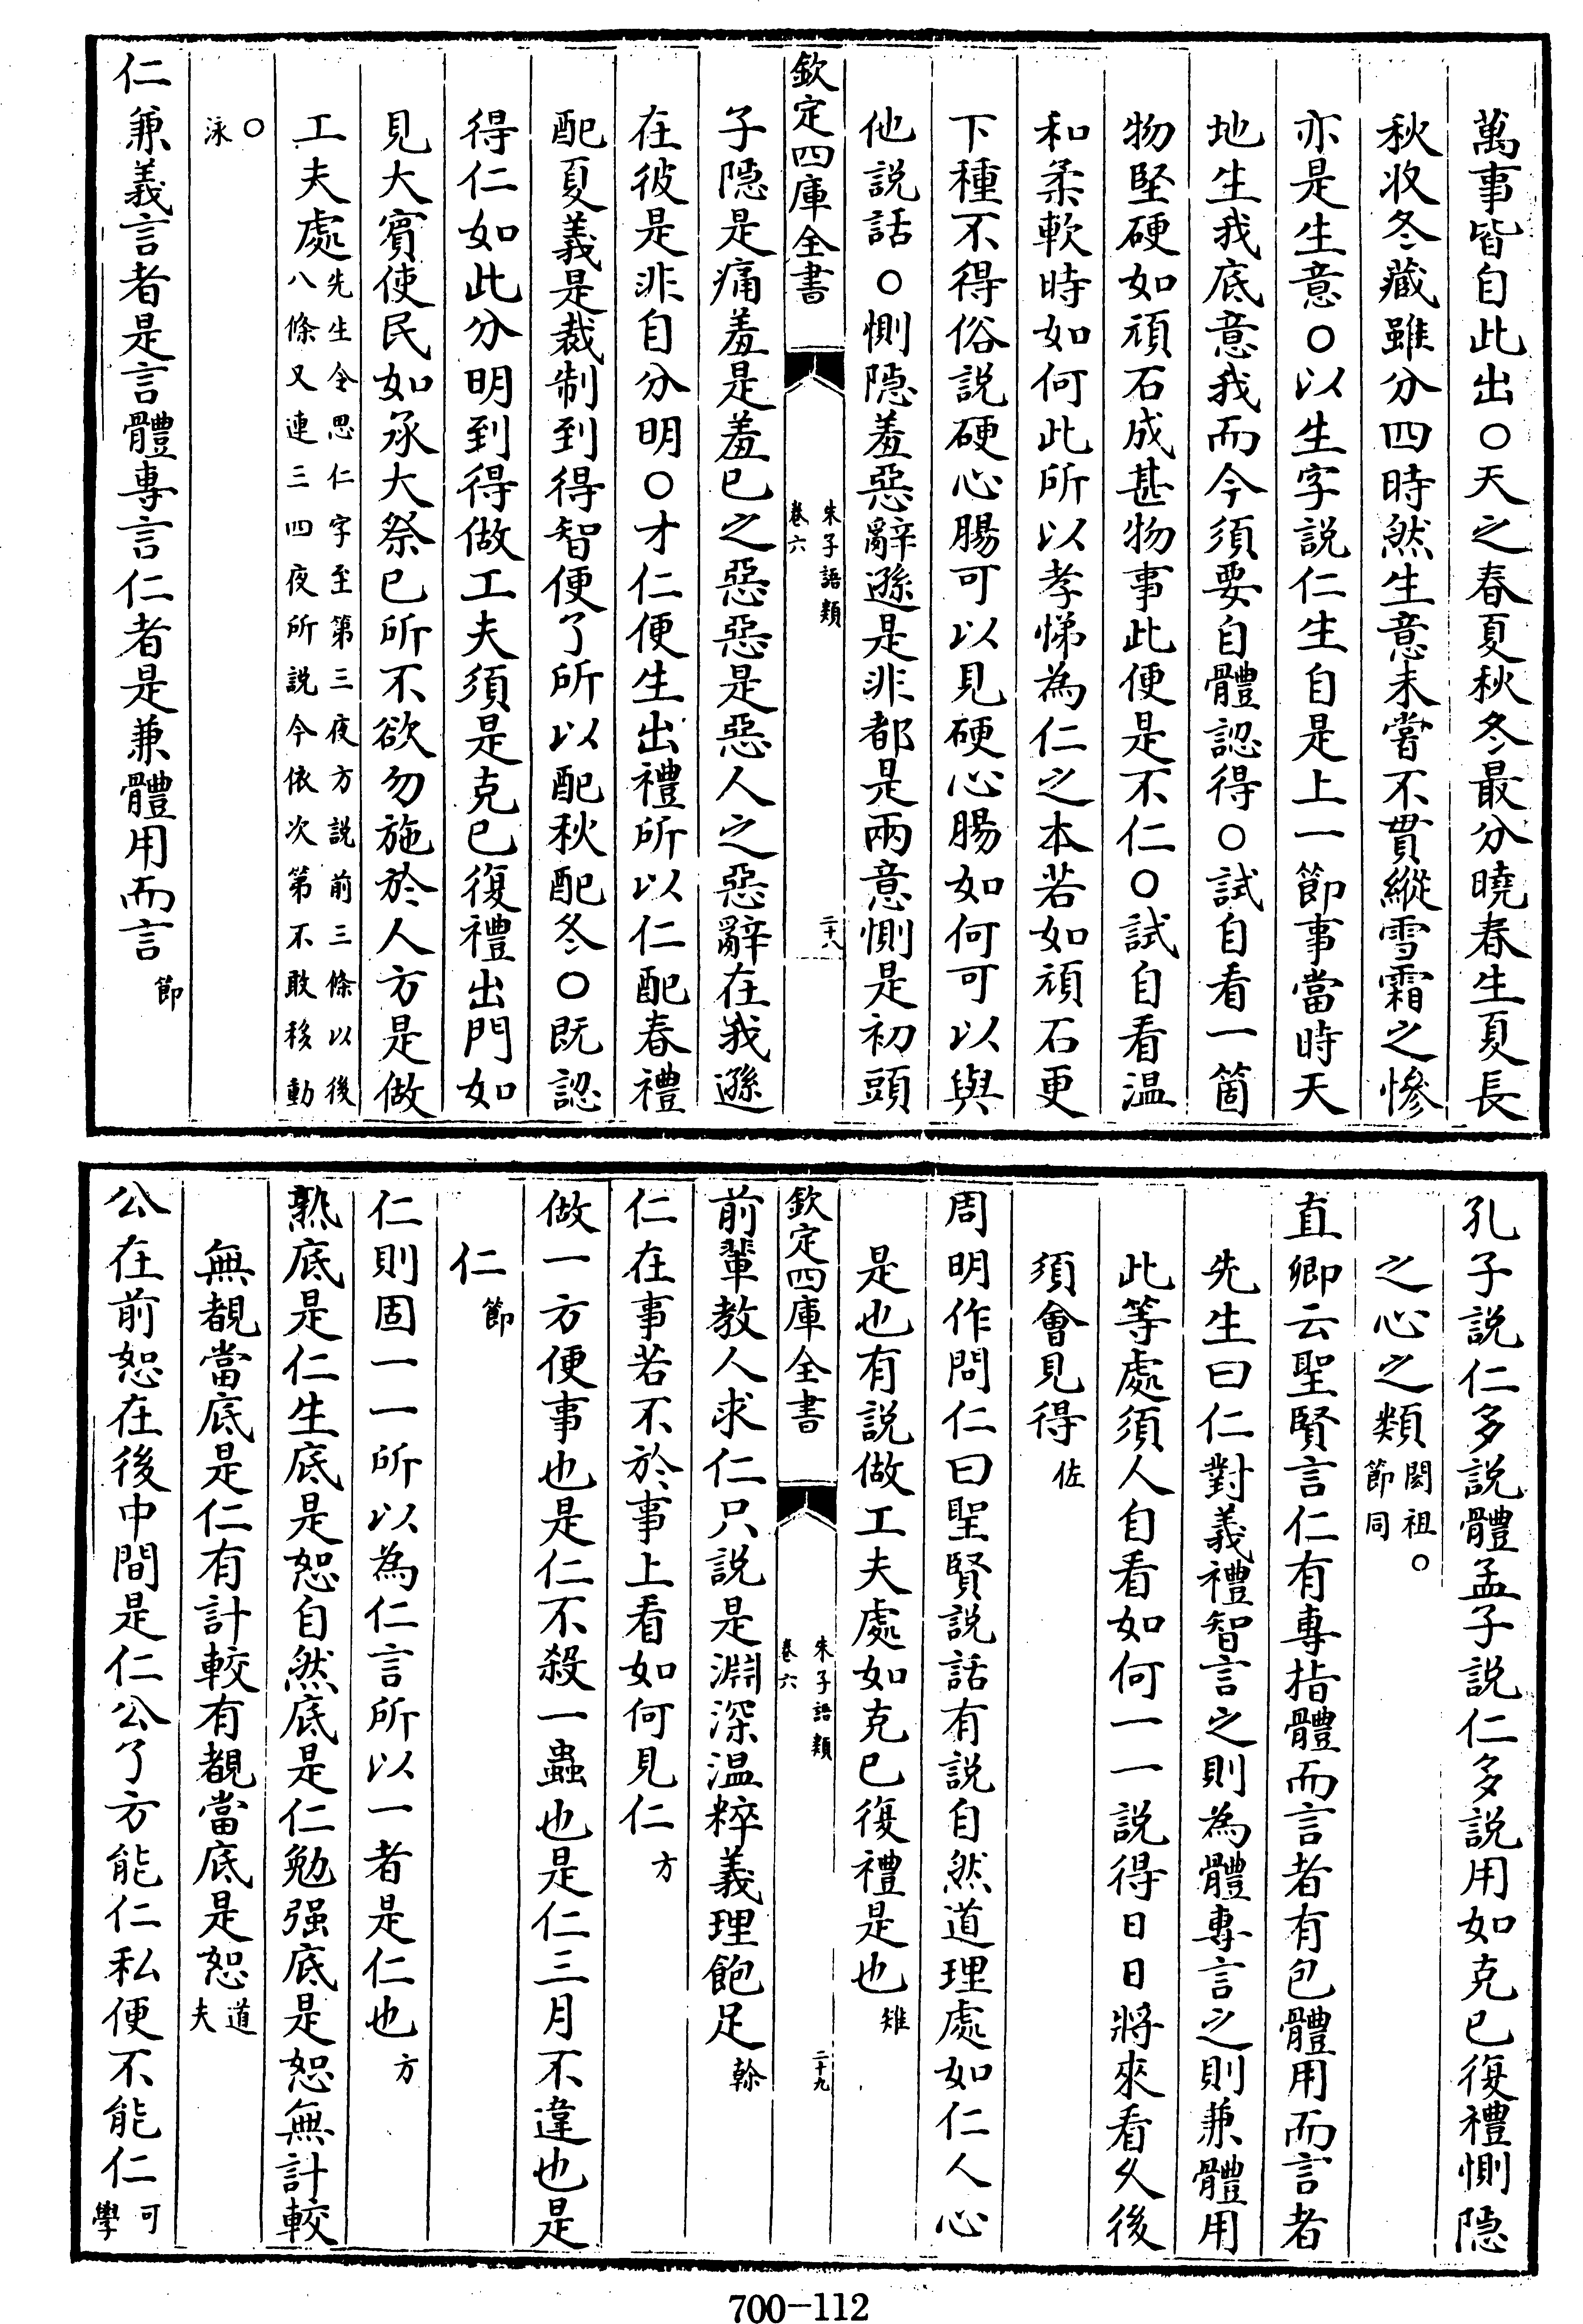 萬事皆自此出○天之春夏秋冬最分曉春生夏長
秋收冬藏雖分四時然生意未嘗不貫縱雪霜之慘
亦是生意○以生字説仁生自是上一節事當時天
地生我底意我而今須要自體認得○試自看一箇
物堅硬如頑石成甚物事此便是不仁○試自看温
和柔軟時如何此所以孝悌為仁之本若如頑石更
下種不得俗説硬心腸可以見硬心腸如何可以與
他説話○惻隠羞惡辭遜是非都是兩意惻是初頭
欽定四庫全書
朱子語類
卷六
二十八
子隠是痛羞是羞已之惡惡是惡人之惡辭在我遜
在彼是非自分明○才仁便生出禮所以仁配春禮
配夏義是裁制到得智便了所以配秋配冬○既認
得仁如此分明到得做工夫須是克已復禮出門如
見大賓使民如承大祭已所不欲勿施於人方是做
工夫處先生令思仁字至第三夜方説前三條以後
八條又連三四夜所説今依次第不敢移動
○
泳
仁兼義言者是言體專言仁者是兼體用而言節
孔子説仁多説體孟子説仁多説用如克已復禮惻隠
之心之類閎祖○
節同
直卿云聖賢言仁有專指體而言者有包體用而言者
先生曰仁對義禮智言之則為體專言之則兼體用
此等處須人自看如何一一説得日日將來看久後
須會見得佐
周明作問仁曰聖賢説話有説自然道理處如仁人心
是也有説做工夫處如克已復禮是也雉
欽定四庫全書
朱子語類
卷六
二十九
前輩教人求仁只説是淵深温粹義理飽足榦
仁在事若不於事上看如何見仁方
做一方便事也是仁不殺一蟲也是仁三月不違也是
仁節
仁則固一一所以為仁言所以一者是仁也方
熟底是仁生底是恕自然底是仁勉强底是恕無計較
無覩當底是仁有計較有覩當底是恕道
夫
公在前恕在後中間是仁公了方能仁私便不能仁可
學
700-112